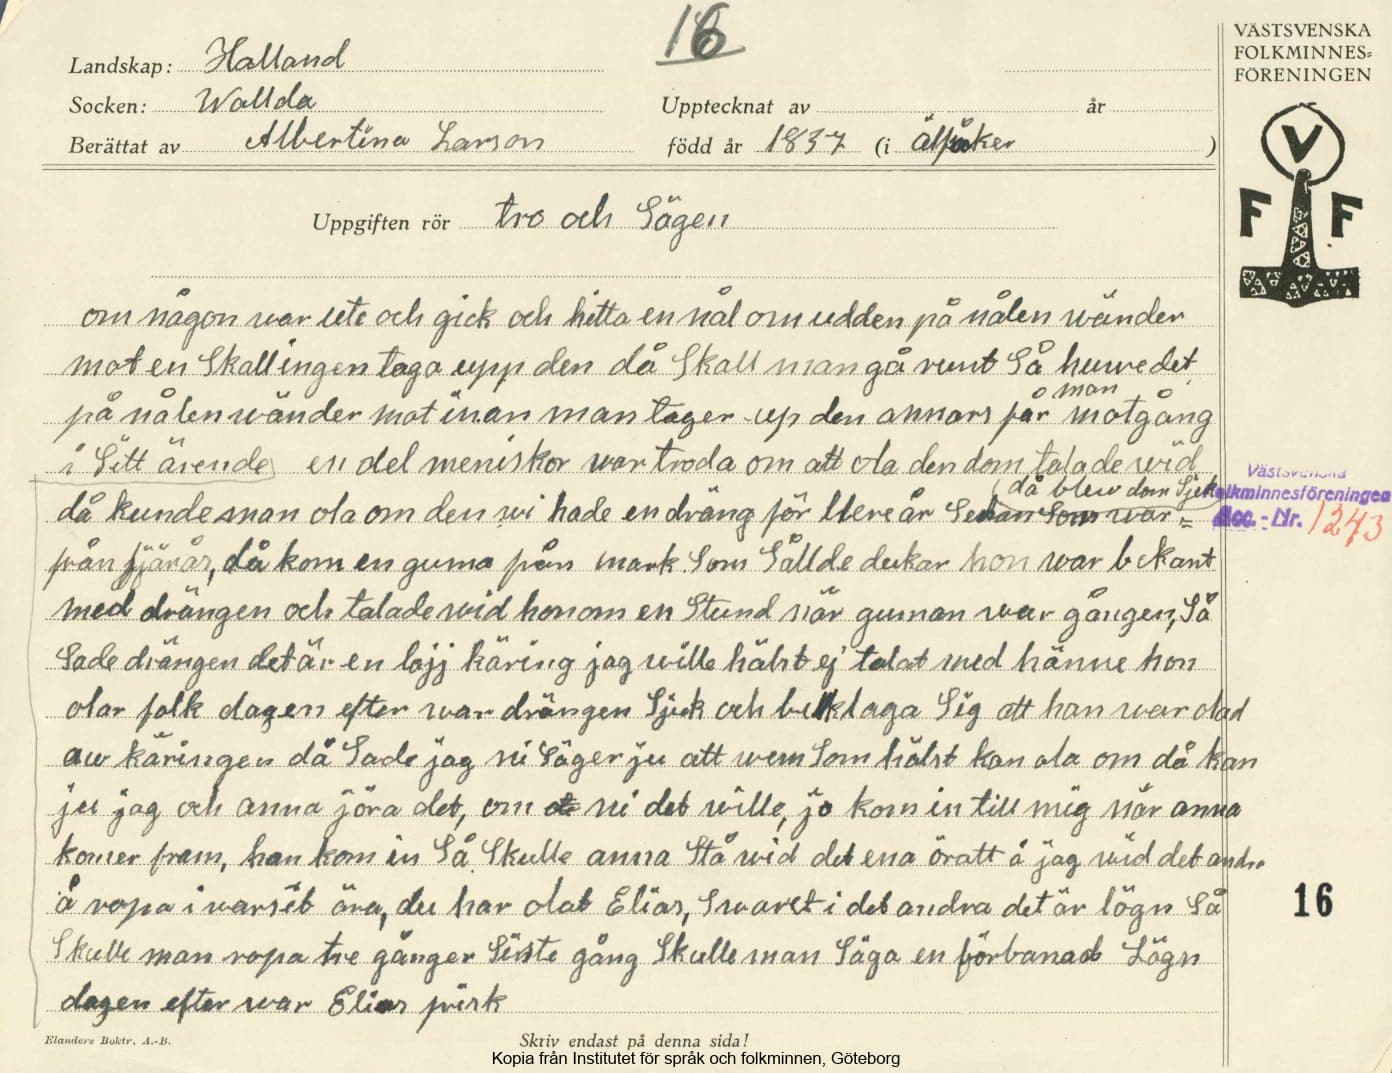 16
VÄSTSVENSKA
FOLKMINNES=
FÖRENINGEN
Landskap: Halland
Socken: Wallda
Upptecknat av år
Berättat av Albertina Larson
född år 1837 (i Älfsåker )
V
F F
Uppgiften rör tro och Sägen
om någon war ute och gick och hitta en nål om udden på nålen wänder
mot en Skall ingen taga upp den då Skall man gå runt Så huwedet
på nålen wänder mot inan man tager up den annars får man motgång
i Sitt ärende en del meniskor war troda om att ola den dom talade wid
då blew dom Sjek
då kunde man ola om den wi hade en dräng för flere år Sedan Som war =
från fjärås, då kom en guma från mark Som Sållde dukar hon war bekant
med drängen och talade wid honom en Stund när guman war gången, Så
Sade drängen det är en lajj käring jag wille hälst ej talat med hänne hon
olar folk dagen efter war drängen Sjuk och beklaga Sig att han war olad
aw käringen då Sade jag ni Säger ju att wem Som hälst kan ola om då kan
ju jag och anna jöra det, om ni det wille, jo kom in till mig när anna
komer fram, han kom in Så Skulle anna Stå wid det ena öratt å jag wid det andra
å ropa i warsit öra, du har olat Elias, Swaret i det andra det är lögn Så
Skulle man ropa tre gånger Siste gång Skulle man Säga en förbanad Lögn
dagen efter war Elias frisk
Västsvenska
Folkminnesföreningen
Acc. - Nr. 1243
16
Elanders Boktr. A.-B.
Skriv endast på denna sida!
Kopia från Institutet för språk och folkminnen, Göteborg